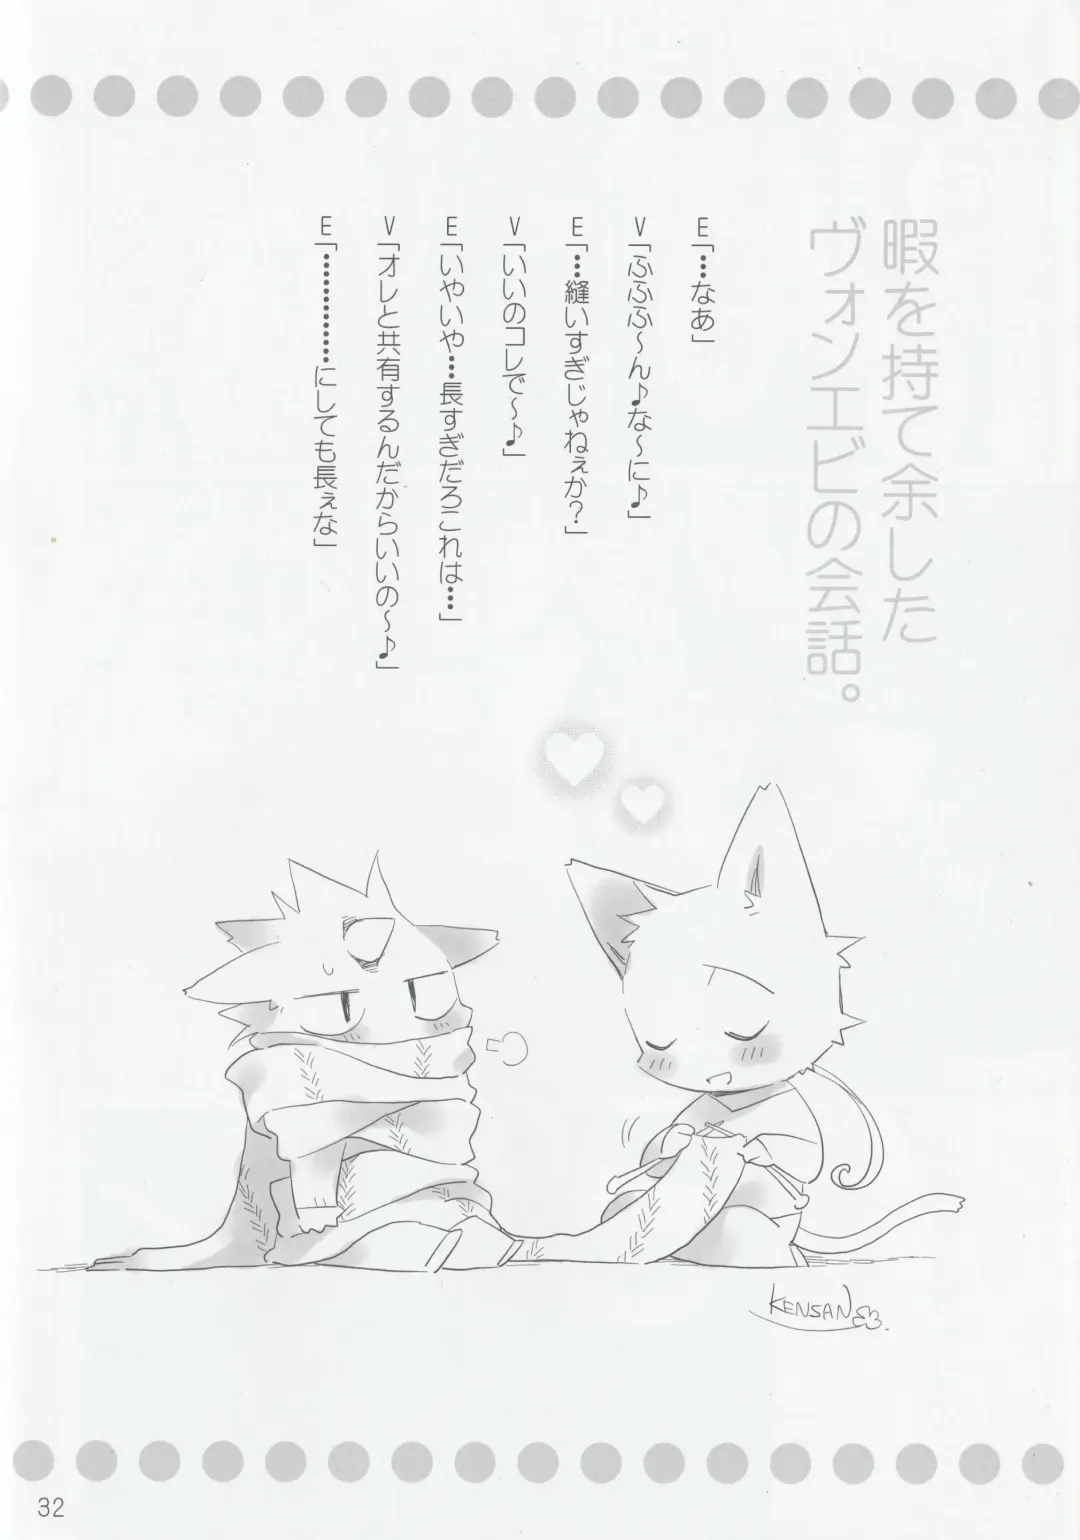 暇を持て余した
ヴォンエビの会話。
E「…なあ」
V「ふふふ～ん♪な～に♪」
E「…縫いすぎじゃねぇか？」
V「いいのコレで～♪」
E「いやいや…長すぎだろこれは…」
V「オレと共有するんだからいいの～♪」
E「……………にしても長ぇな」
KENSAN
32